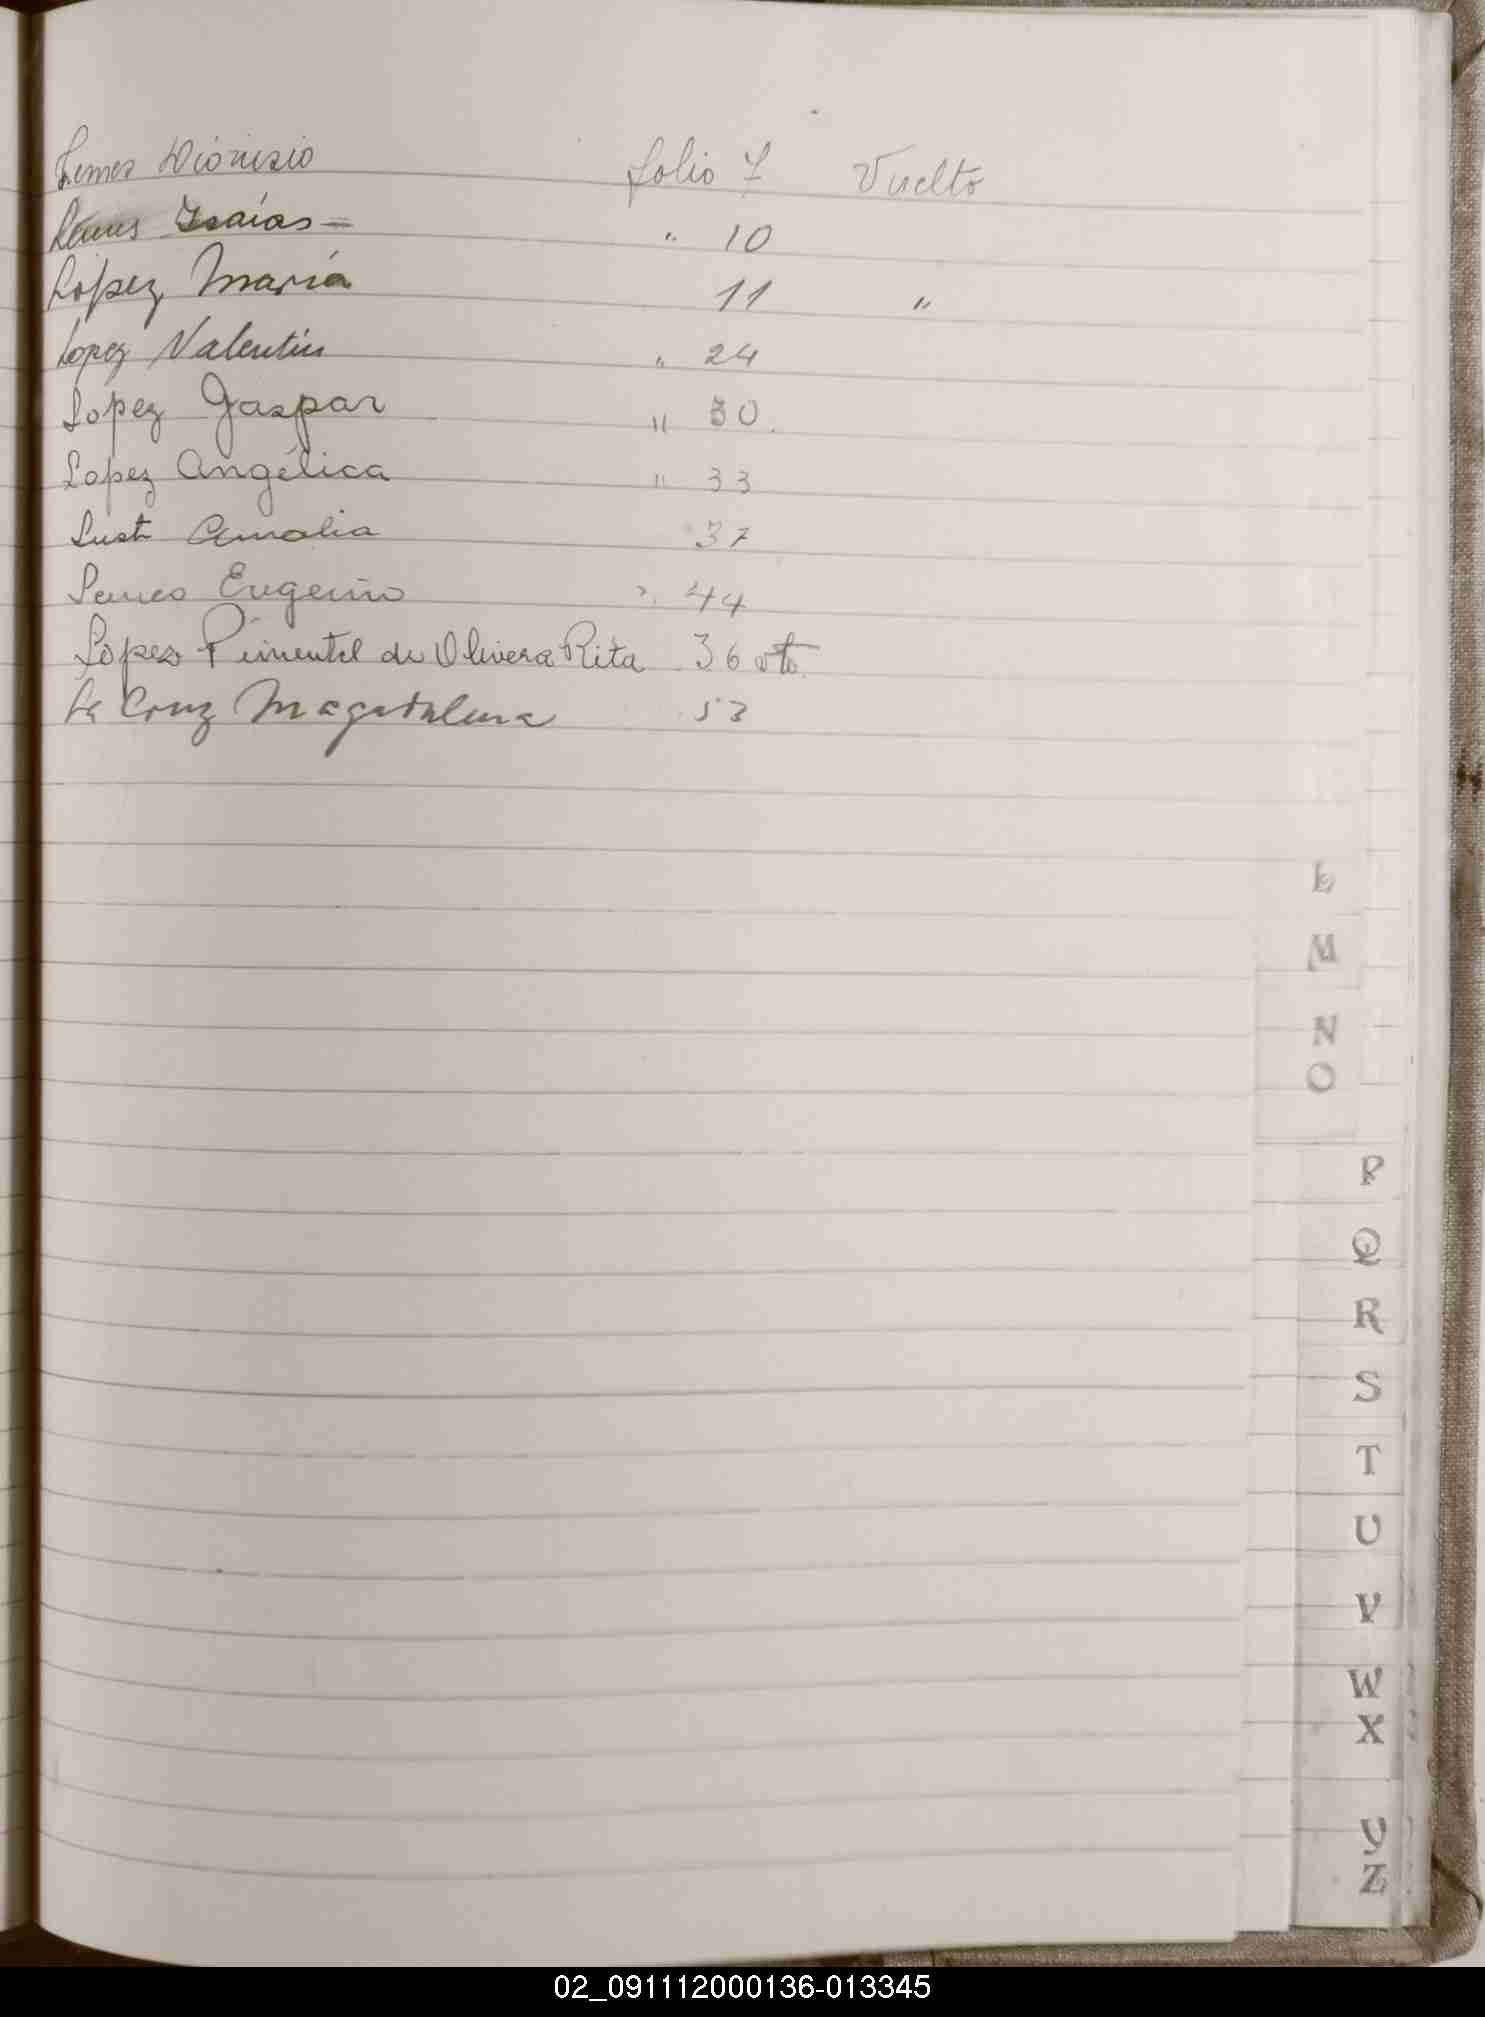 Lemes Dionisio folio 7 Vuelto
Lemes Isaías = " 10
López María 11 "
Lopez Valentin " 24
Lopez Gaspar " 30.
Lopez Angélica " 33
Lust Amalia 37
Lemes Eugenio " 44
Lopez Pimentel de Olivera Rita 36 vto.
La Cruz Magdalena 53
L
M
N
O
P
Q
R
S
T
U
V
W
X
Y
Z
02_091112000136-013345